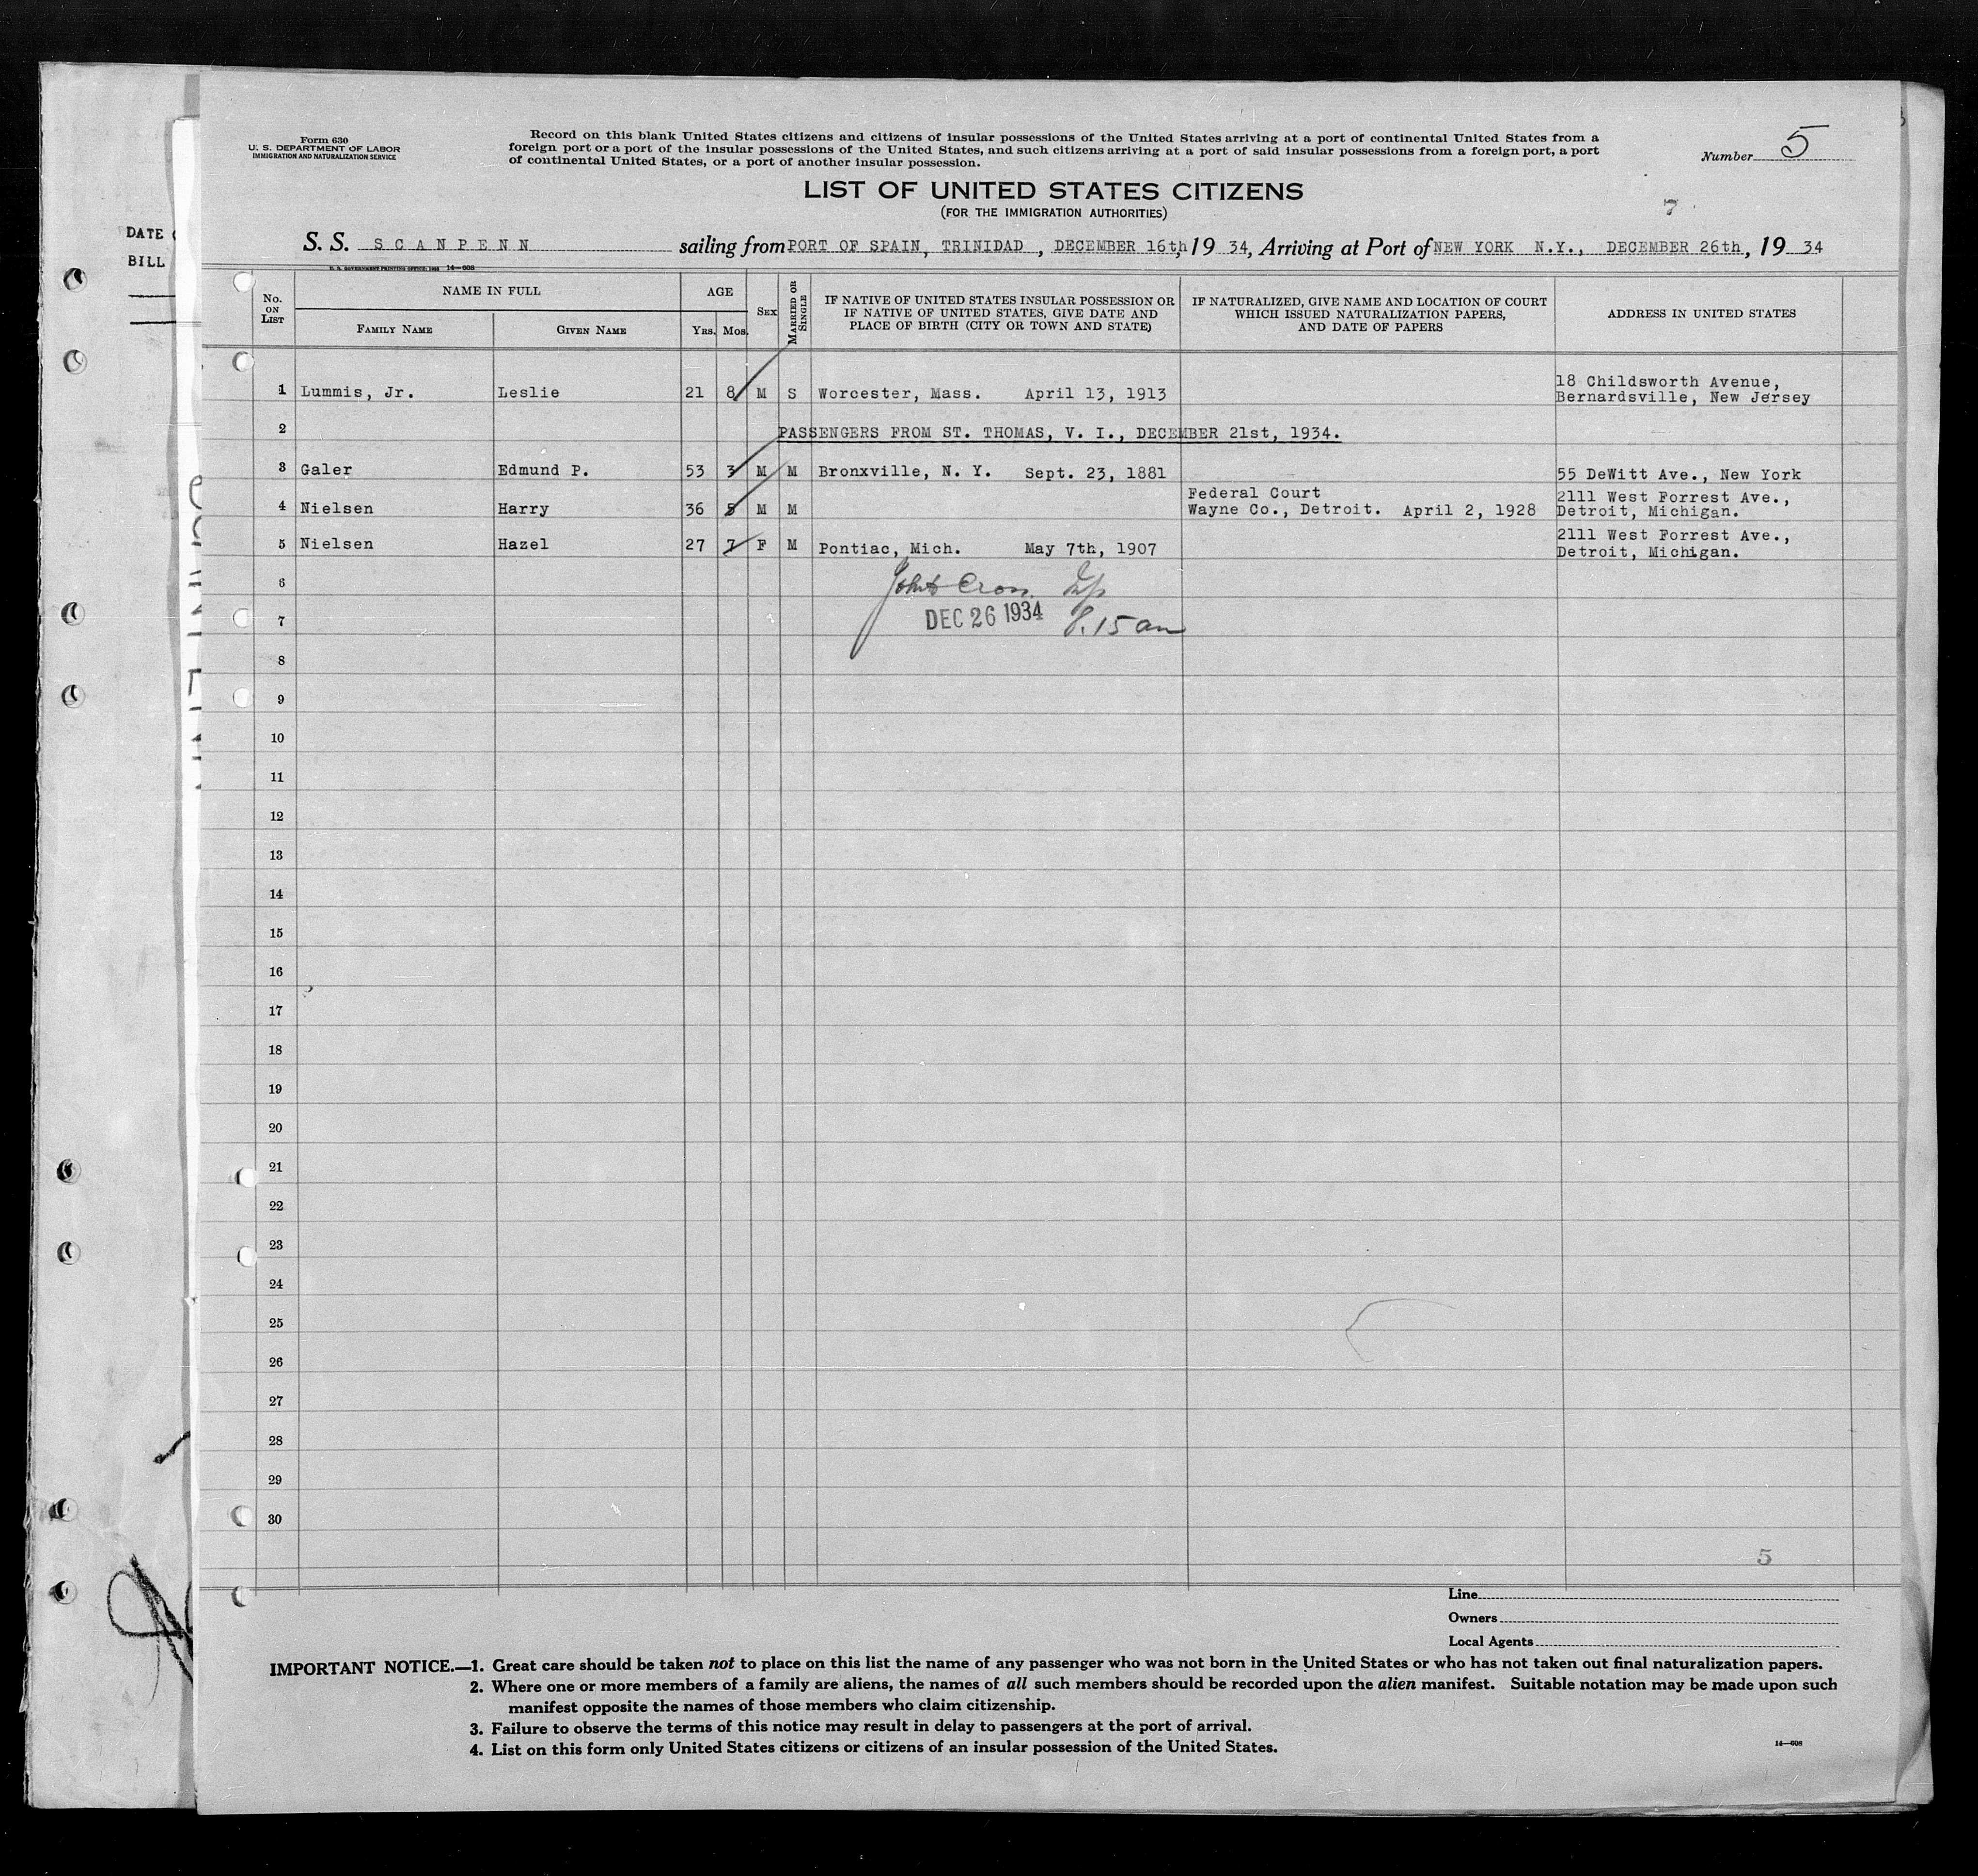 Form 630
U. S. DEPARTMENT OF LABOR
IMMIGRATION AND NATURALIZATION SERVICE
Record on this blank United States citizens and citizens of insular possessions of the United States arriving at a port of continental United States from a
foreign port or a port of the insular possessions of the United States, and such citizens arriving at a port of said insular possessions from a foreign port, a port
of continental United States, or a port of another insular possession.
Number 5
LIST OF UNITED STATES CITIZENS
(FOR THE IMMIGRATION AUTHORITIES)
7
DATE
BILL
S. S. SCANPENN sailing from PORT OF SPAIN, TRINIDAD, DECEMBER 16th, 19 34, Arriving at Port of NEW YORK N.Y., DECEMBER 26th, 19 34
U. S. GOVERNMENT PRINTING OFFICE: 14—608
No. ON LIST
NAME IN FULL
FAMILY NAME
GIVEN NAME
AGE
YRS. MOS.
SEX
MARRIED OR SINGLE
IF NATIVE OF UNITED STATES INSULAR POSSESSION OR
IF NATIVE OF UNITED STATES, GIVE DATE AND
PLACE OF BIRTH (CITY OR TOWN AND STATE)
IF NATURALIZED, GIVE NAME AND LOCATION OF COURT
WHICH ISSUED NATURALIZATION PAPERS,
AND DATE OF PAPERS
ADDRESS IN UNITED STATES
1 Lummis, Jr. Leslie 21 8 M S Worcester, Mass. April 13, 1913 18 Childsworth Avenue,
Bernardsville, New Jersey
2 PASSENGERS FROM ST. THOMAS, V. I., DECEMBER 21st, 1934.
3 Galer Edmund P. 53 3 M M Bronxville, N. Y. Sept. 23, 1881 55 DeWitt Ave., New York
4 Nielsen Harry 36 5 M M Federal Court
Wayne Co., Detroit. April 2, 1928 2111 West Forrest Ave.,
Detroit, Michigan.
5 Nielsen Hazel 27 7 F M Pontiac, Mich. May 7th, 1907 2111 West Forrest Ave.,
Detroit, Michigan.
6
7 DEC 26 1934 8.15 am
8
9
10
11
12
13
14
15
16
17
18
19
20
21
22
23
24
25
26
27
28
29
30
5
Line
Owners
Local Agents
IMPORTANT NOTICE.—1. Great care should be taken not to place on this list the name of any passenger who was not born in the United States or who has not taken out final naturalization papers.
2. Where one or more members of a family are aliens, the names of all such members should be recorded upon the alien manifest. Suitable notation may be made upon such
manifest opposite the names of those members who claim citizenship.
3. Failure to observe the terms of this notice may result in delay to passengers at the port of arrival.
4. List on this form only United States citizens or citizens of an insular possession of the United States.
14—608